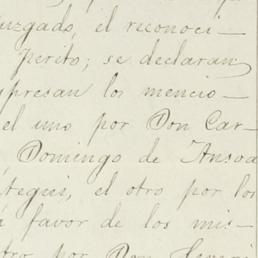 uzgado, el reconoci—
perito; se declaran
xpresan los mencio—
el uno por Don Car—
Domingo de Ansoa
tegui, el otro por los
á favor de los mis—
tro por Don